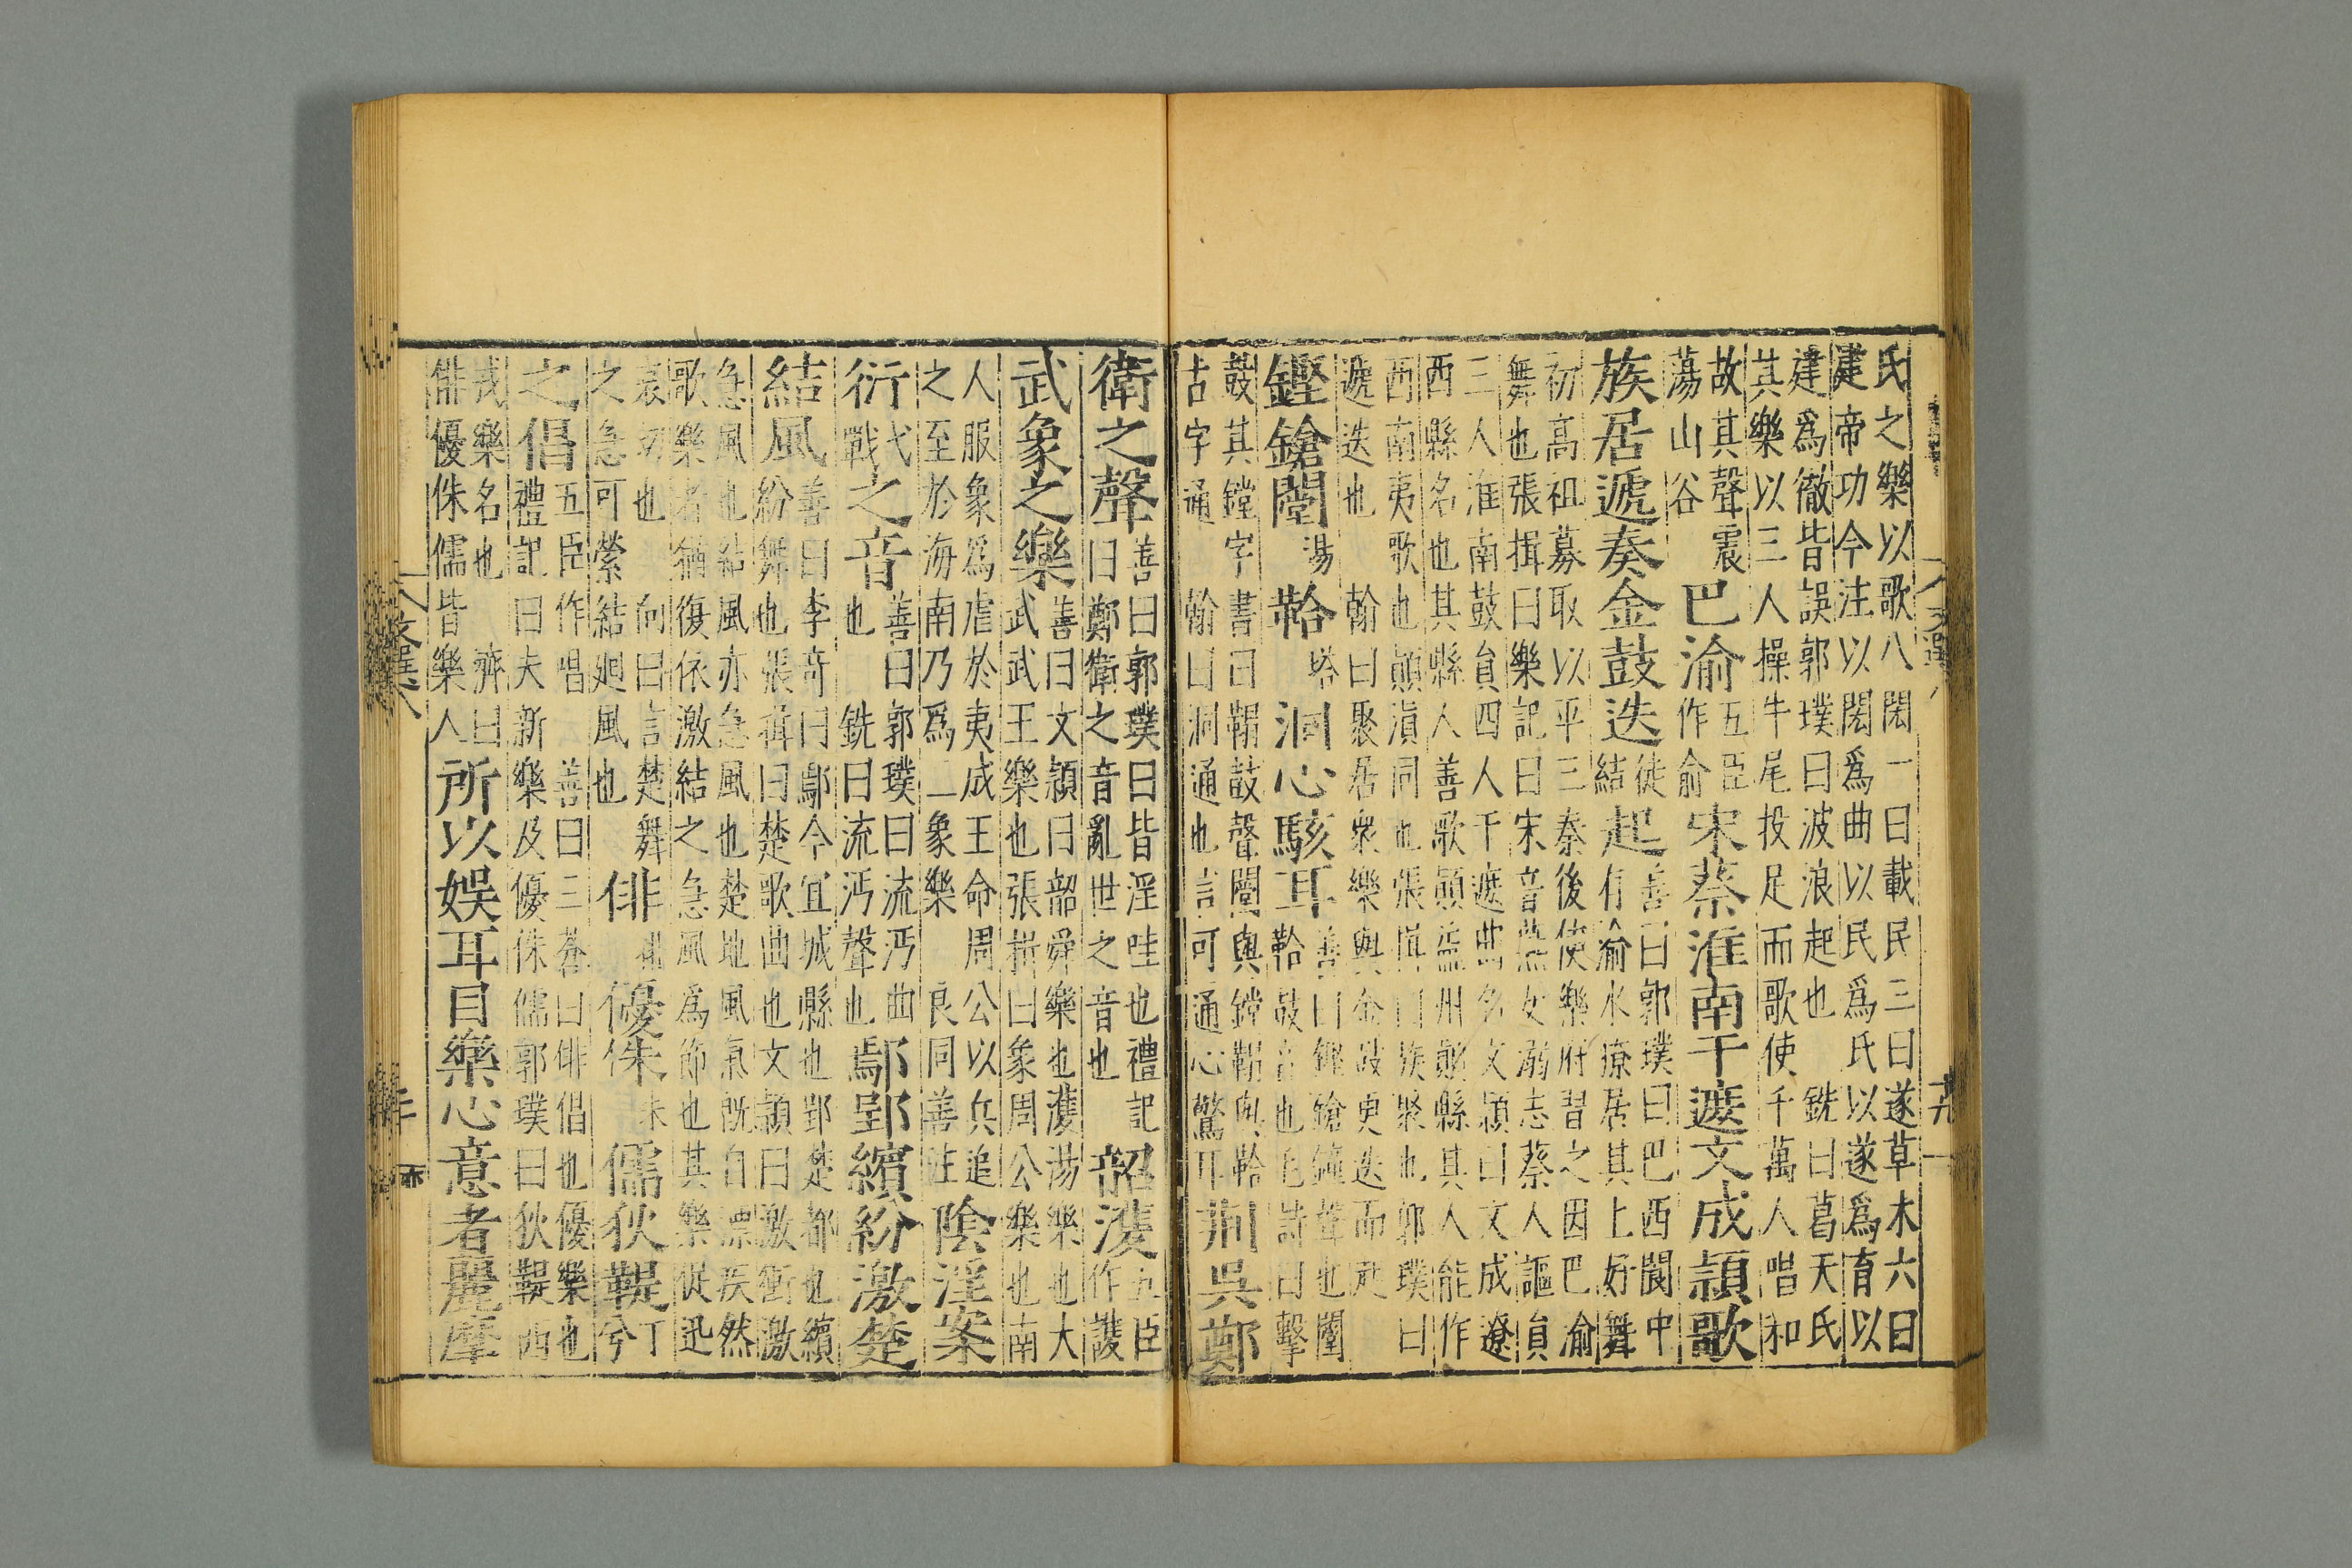 氏之樂以歌八闋一曰載民三曰遂草木六曰
建帝功今注以闋爲曲以民爲氏以遂爲育以
建爲徹皆誤郭璞曰波浪起也 銑曰葛天氏
其樂以三人操牛尾投足而歌使千萬人唱和
故其聲震
蕩山谷
巴渝五臣作俞宋蔡淮南干遮文成顛歌
族居遞奏金鼓迭徒結起善曰郭璞曰巴西閬中
有渝水療居其上好舞
初高祖募取以平三秦後使樂府習之因巴渝
舞也張揖曰樂記曰宋音燕女溺志蔡人謳員
三人淮南鼓員四人干遮曲名文潁曰文成遼
西縣名也其縣人善歌顛益州顛縣其人能作
西南夷歌也顛滇同也張揖曰族聚也郭璞曰
遞迭也 翰曰聚居衆樂與金鼓更迭而起
鏗鎗闛湯鞈塔洞心駭耳善曰鏗鎗鐘聲也闛
鞈鼓音也毛詩曰擊
鼓其鏜字書曰鞈鼓聲闛與鏜鞈與鞈
古字通 翰曰洞通也言可通心驚耳荆吳鄭
衛之聲善曰郭璞曰皆淫哇也禮記
曰鄭衛之音亂世之音也韶濩五臣作護
武象之樂善曰文潁曰韶舜樂也濩湯樂也大
武武王樂也張揖曰象周公樂也南
人服象爲虐於夷成王命周公以兵追
之至於海南乃爲三象樂 良同善注陰淫案
衍弋戰之音善曰郭璞曰流沔曲
也 銑曰流沔聲也鄢郢繽紛激楚
結風善曰李奇曰鄢今宜城縣也郢楚都也繽
紛舞也張揖曰楚歌曲也文潁曰激衝激
急風也結風亦急風也楚地風氣既自漂疾然
歌樂者猶復依激結之急風爲節也其樂促迅
哀切也 向曰言楚舞
之急可縈結廻風也俳排優侏朱儒狄鞮丁兮
之倡五臣作唱 善曰三蒼曰俳倡也優樂也
禮記曰夫新樂及優侏儒郭璞曰狄鞮西
戎樂名也 濟曰
俳優侏儒皆樂人所以娛耳目樂心意者麗靡